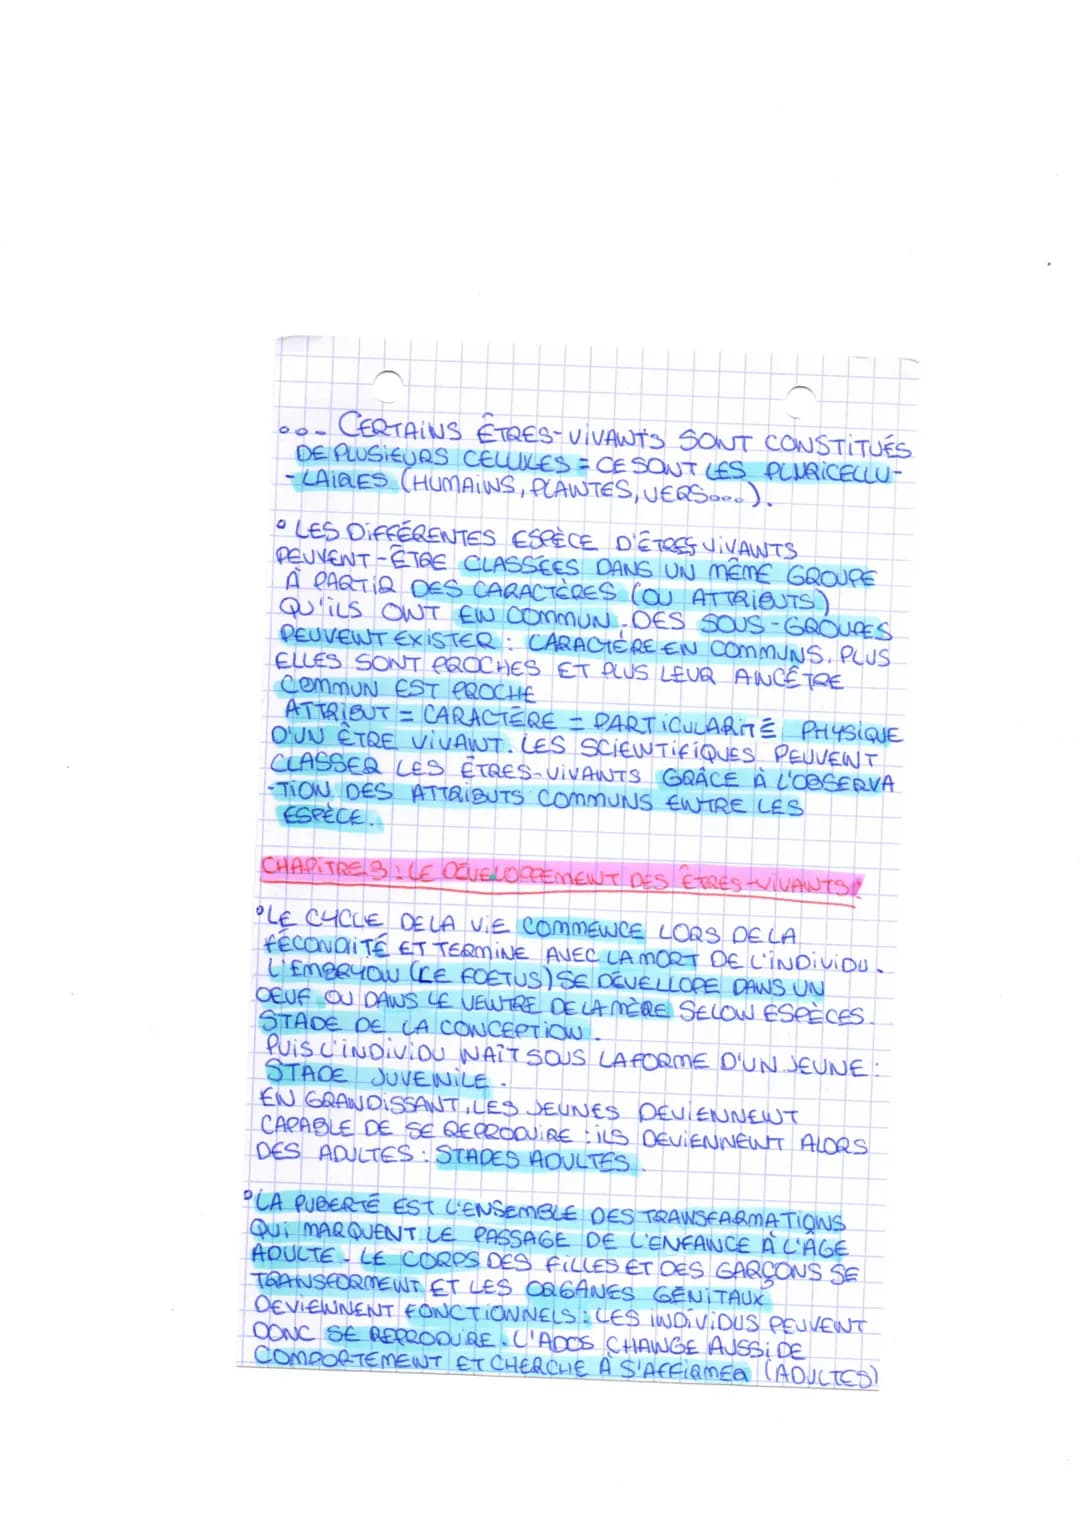 ... CERTAINS ÊTRES-VIVANTS SONT CONSTITUÉS
DE PLUSIEURS CELLULES = CE SONT LES PLURICELLU-
-LAIRES (HUMAINS, PLANTES, VERS...).
° LES DIFFÉRENTES ESPÈCE D'ÊTRES VIVANTS
PEUVENT-ÊTRE CLASSÉES DANS UN MÊME GROUPE
À PARTIR DES CARACTÈRES (OU ATTRIBUTS)
QU'ILS ONT EN COMMUN. DES SOUS-GROUPES
PEUVENT EXISTER : CARACTÈRE EN COMMUNS. PLUS
ELLES SONT PROCHES ET PLUS LEUR ANCÊTRE
COMMUN EST PROCHE
ATTRIBUT = CARACTÈRE = PARTICULARITÉ PHYSIQUE
D'UN ÊTRE VIVANT. LES SCIENTIFIQUES PEUVENT
CLASSER LES ÊTRES-VIVANTS GRÂCE À L'OBSERVA
-TION DES ATTRIBUTS COMMUNS ENTRE LES
ESPÈCE.
CHAPITRE 3 : LE DEVELOPPEMENT DES ÊTRES-VIVANTS!
° LE CYCLE DE LA VIE COMMENCE LORS DE LA
FÉCONDITÉ ET TERMINE AVEC LA MORT DE L'INDIVIDU.
L'EMBRYON (LE FOETUS) SE DÉVELLOPE DANS UN
OEUF OU DANS LE VENTRE DE LA MÈRE SELON ESPÈCES.
STADE DE LA CONCEPTION.
PUIS L'INDIVIDU NAÎT SOUS LA FORME D'UN JEUNE :
STADE JUVENILE.
EN GRANDISSANT, LES JEUNES DEVIENNENT
CAPABLE DE SE REPRODUIRE : ILS DEVIENNENT ALORS
DES ADULTES : STADES ADULTES.
° LA PUBERTÉ EST L'ENSEMBLE DES TRANSFARMATIONS
QUI MARQUENT LE PASSAGE DE L'ENFANCE À L'ÂGE
ADULTE. LE CORPS DES FILLES ET DES GARÇONS SE
TRANSFORMENT ET LES ORGANES GÉNITAUX
DEVIENNENT FONCTIONNELS : LES INDIVIDUS PEUVENT
DONC SE REPRODUIRE. L'ADOS CHANGE AUSSI DE
COMPORTEMENT ET CHERCHE À S'AFFIRMER (ADULTES)